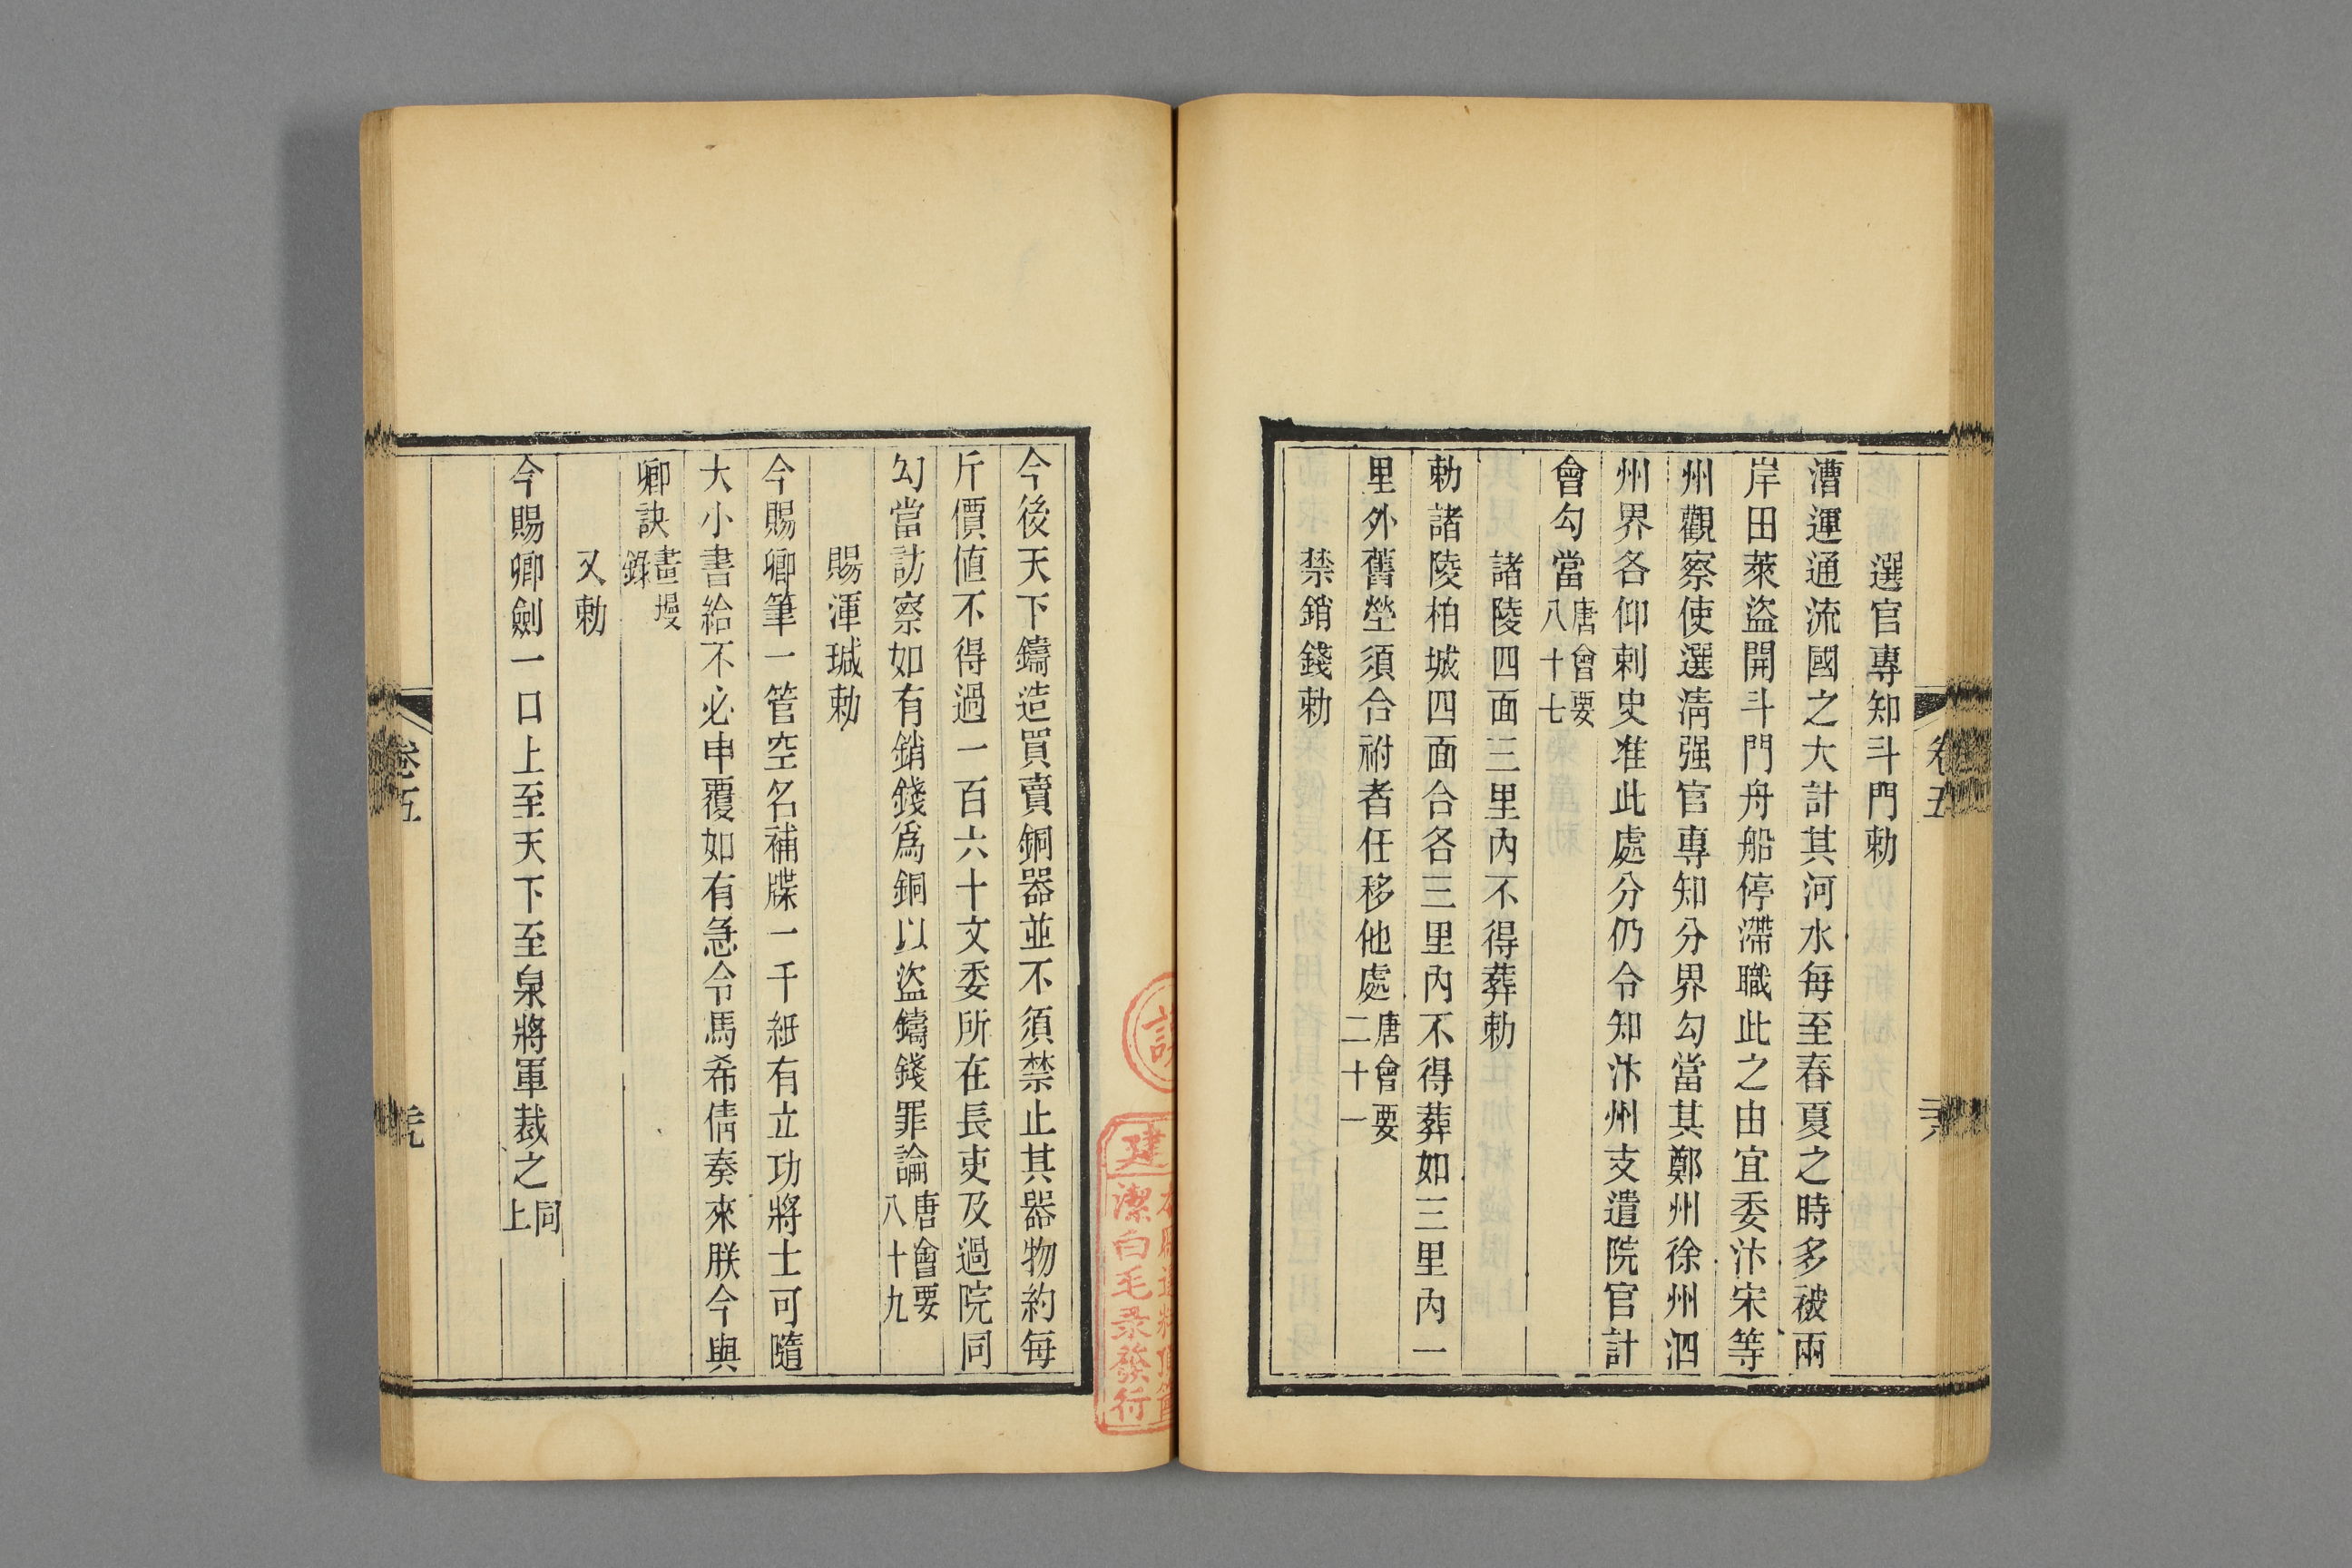 選官專知斗門勅
漕運通流國之大計其河水每至春夏之時多被兩
岸田萊盜開斗門舟船停滯職此之由宜委汴宋等
州觀察使選清强官專知分界勾當其鄭州徐州泗
州界各仰刺史准此處分仍令知汴州支遣院官計
會勾當唐會要八十七
諸陵四面三里內不得葬勅
勅諸陵柏城四面合各三里內不得葬如三里內一
里外舊塋須合祔者任移他處唐會要二十一
禁銷錢勅
今後天下鑄造買賣銅器並不須禁止其器物約每
斤價値不得過一百六十文委所在長吏及過院同
勾當訪察如有銷錢爲銅以盜鑄錢罪論唐會要八十九
賜渾瑊勅
今賜卿筆一管空名補牒一千紙有立功將士可隨
大小書給不必申覆如有急令馬希倩奏來朕今與
卿訣畫墁錄
又勅
今賜卿劍一口上至天下至泉將軍裁之同上
卷五
卷五
建
潔白毛彔發行